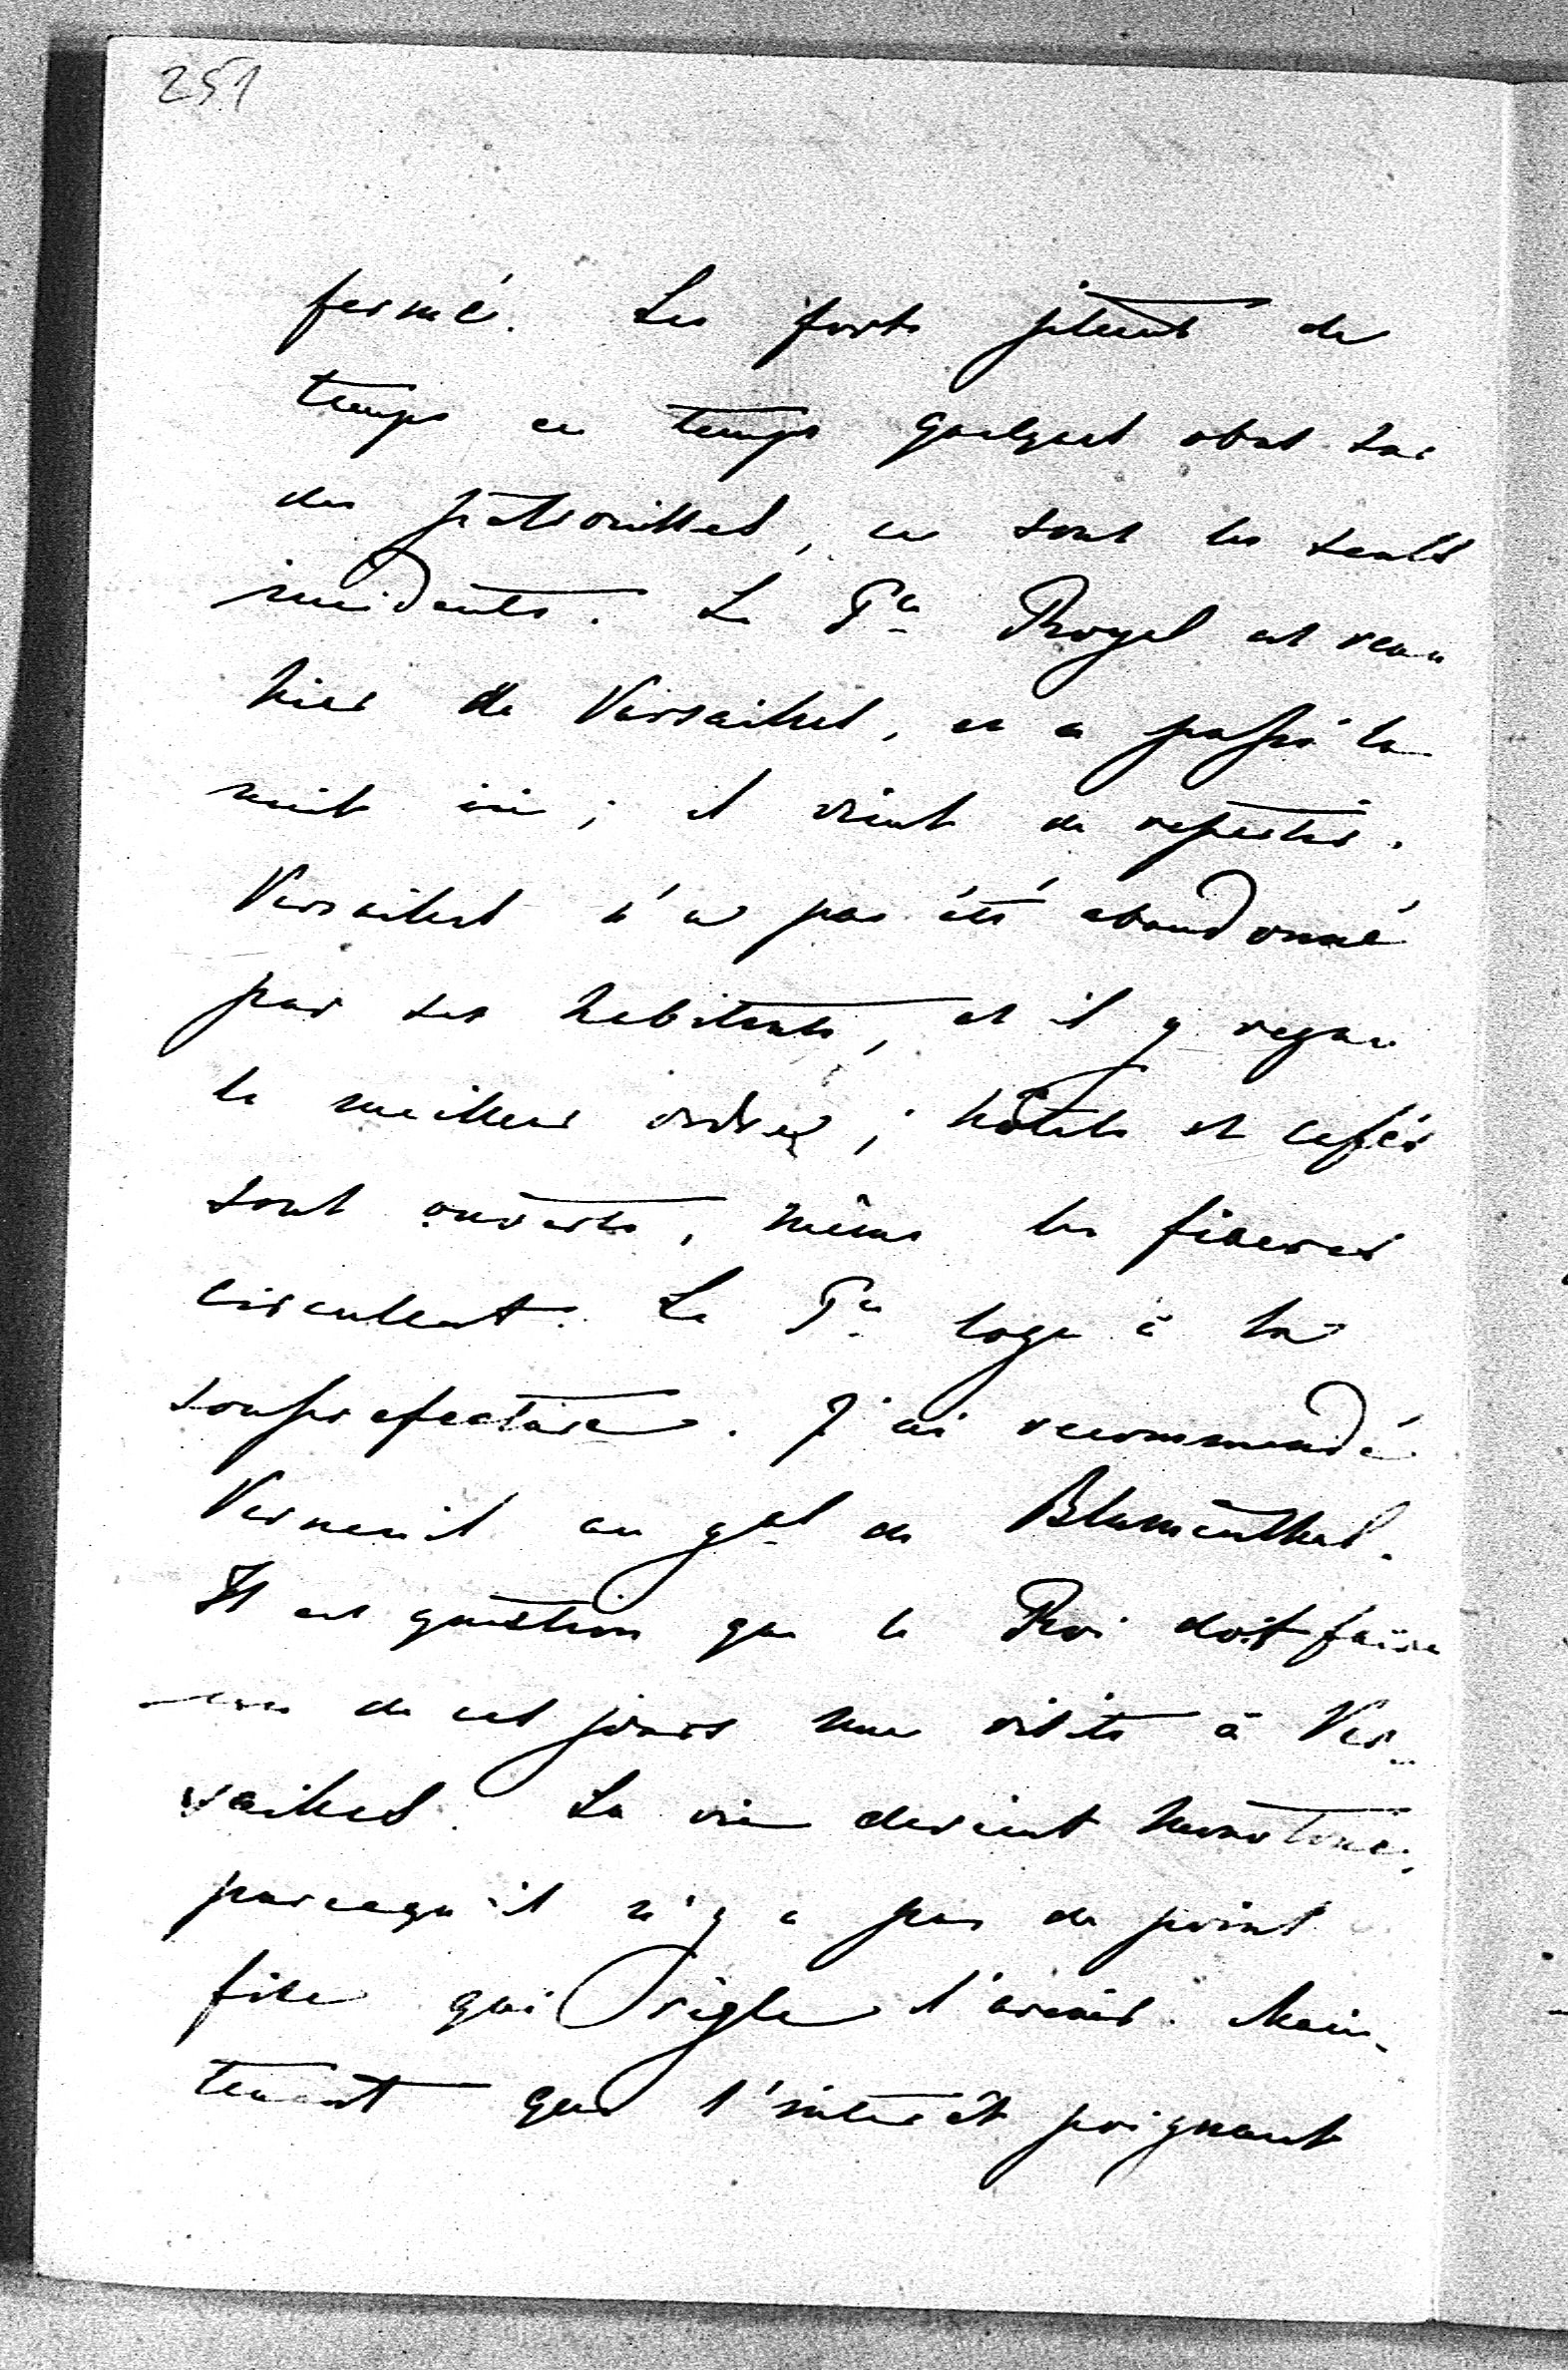 251
fermé. Les forts jettent de
temps en temps quelques obus sur
des patrouilles, ce sont les seuls
incidents. Le Pce Royal est venu
hier de Versailles, et a passé la
nuit ici; il vient de repartir.
Versailles n'a pas été abandonné
par ses habitants, et il y regne
le meilleur ordre; hôtels et cafés
sont ouverts, même les fiacres
circulent. Le Pce loge à la
souspréfecture. J'ai recommandé
Verneuil au gal de Blumenthal.
Il est question que le Roi doit faire
un de ces jours une visite à Ver-
sailles. La vie devient monotone,
parcequ'il n'y a pas de point
fixe qui règle l'avenir. Main-
tenant que l'interêt poignant